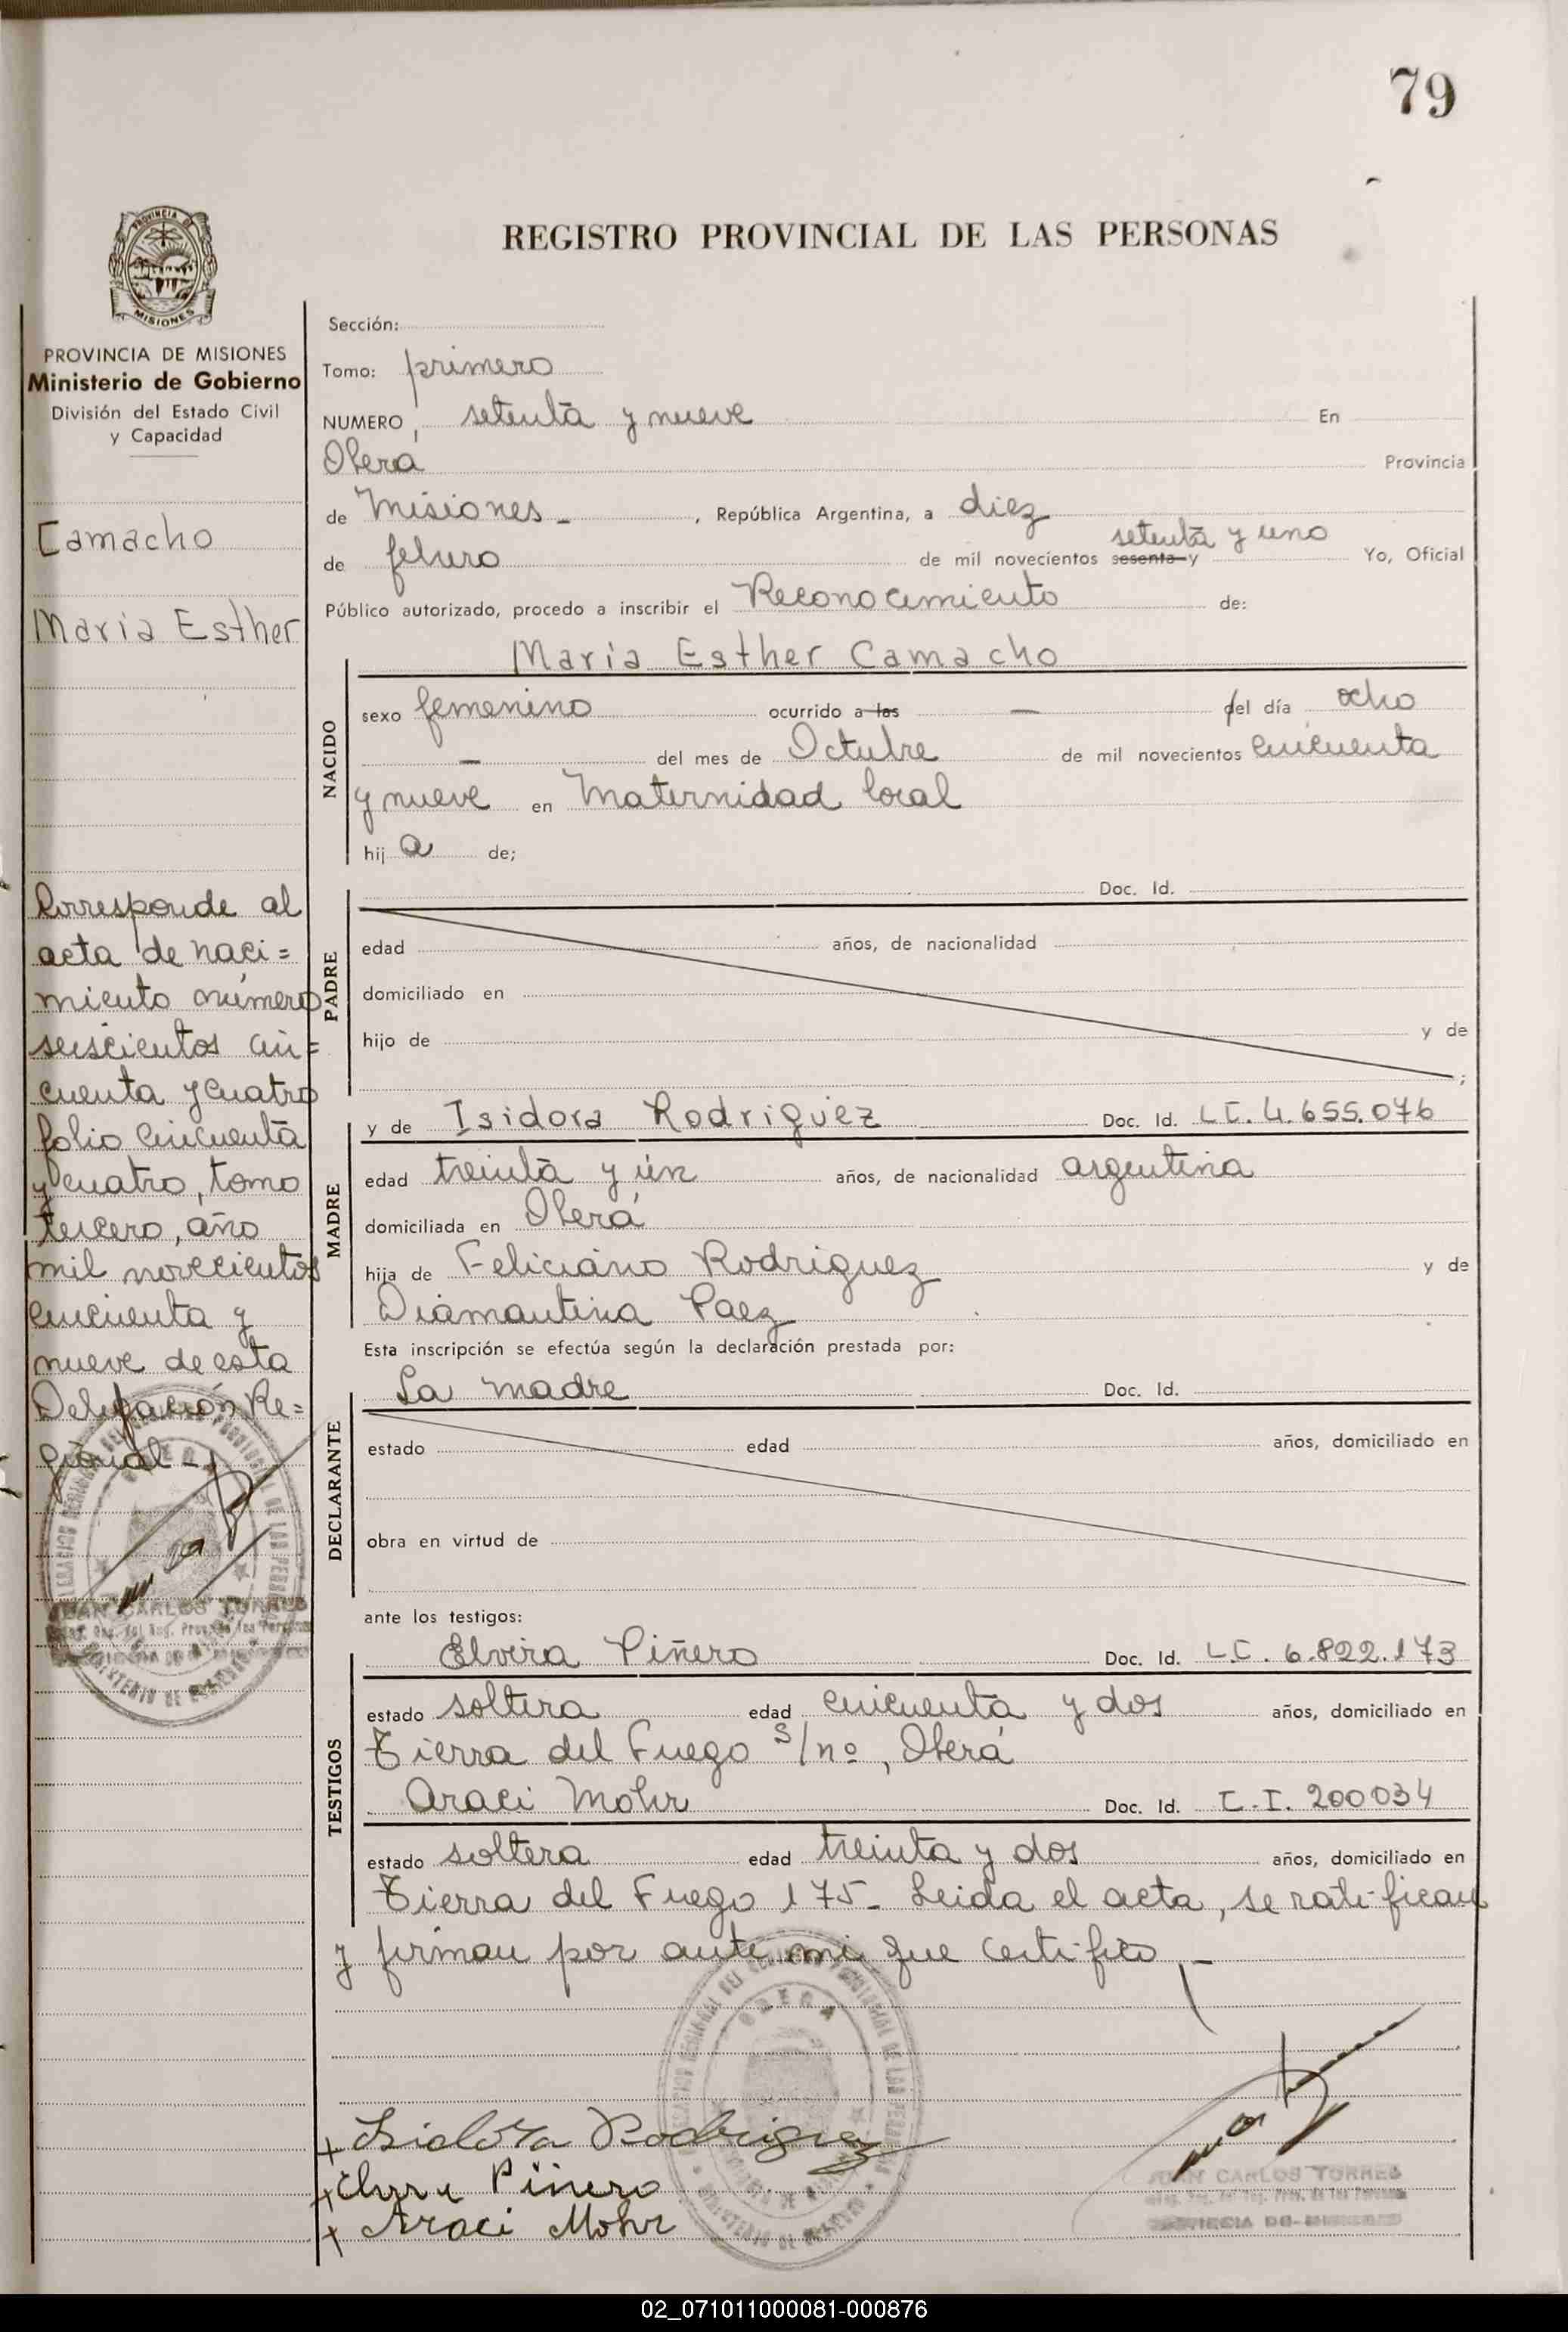 79
REGISTRO PROVINCIAL DE LAS PERSONAS
PROVINCIA DE MISIONES
PROVINCIA DE MISIONES
Ministerio de Gobierno
División del Estado Civil
y Capacidad
Camacho
Maria Esther
Corresponde al
acta de naci=
miento número
seiscientos cin=
cuenta y cuatro
folio cincuenta
y cuatro, tomo
tercero, año
mil novecientos
cincuenta y
nueve de esta
Delegación Re=
gional -
JUAN CARLOS TORRES
Sección:
Tomo: primero
NUMERO, setenta y nueve En
Obera Provincia
de Misiones - , República Argentina, a diez
setenta y uno
de febrero de mil novecientos sesenta y Yo, Oficial
Público autorizado, procedo a inscribir el Reconocimiento de:
Maria Esther Camacho
NACIDO
sexo femenino ocurrido a las — del día ocho
— del mes de Octubre de mil novecientos cincuenta
y nueve en Maternidad local
hij a de;
Doc. Id.
PADRE
edad años, de nacionalidad
domiciliado en
hijo de y de
;
y de Isidora Rodriguez Doc. Id. LC. 4.655.076
MADRE
edad treinta y ún años, de nacionalidad argentina
domiciliada en Oberá
hija de Feliciano Rodriguez y de
Diamantina Paez
Esta inscripción se efectúa según la declaración prestada por:
La madre Doc. Id.
DECLARANTE
estado edad años, domiciliado en
obra en virtud de
ante los testigos:
Elvira Piñero Doc. Id. L.C. 6.822.173
TESTIGOS
estado soltera edad cincuenta y dos años, domiciliado en
Tierra del Fuego s/nº, Oberá
Araci Mohr Doc. Id. C.I. 200034
estado soltera edad treinta y dos años, domiciliado en
Tierra del Fuego 175- Leida el acta, se ratifican
y firman por ante mi que certifico -
OBERA
+ Isidora Rodriguez
+ Piñero
+ Araci Mohr
JUAN CARLOS TORRES
02_071011000081-000876